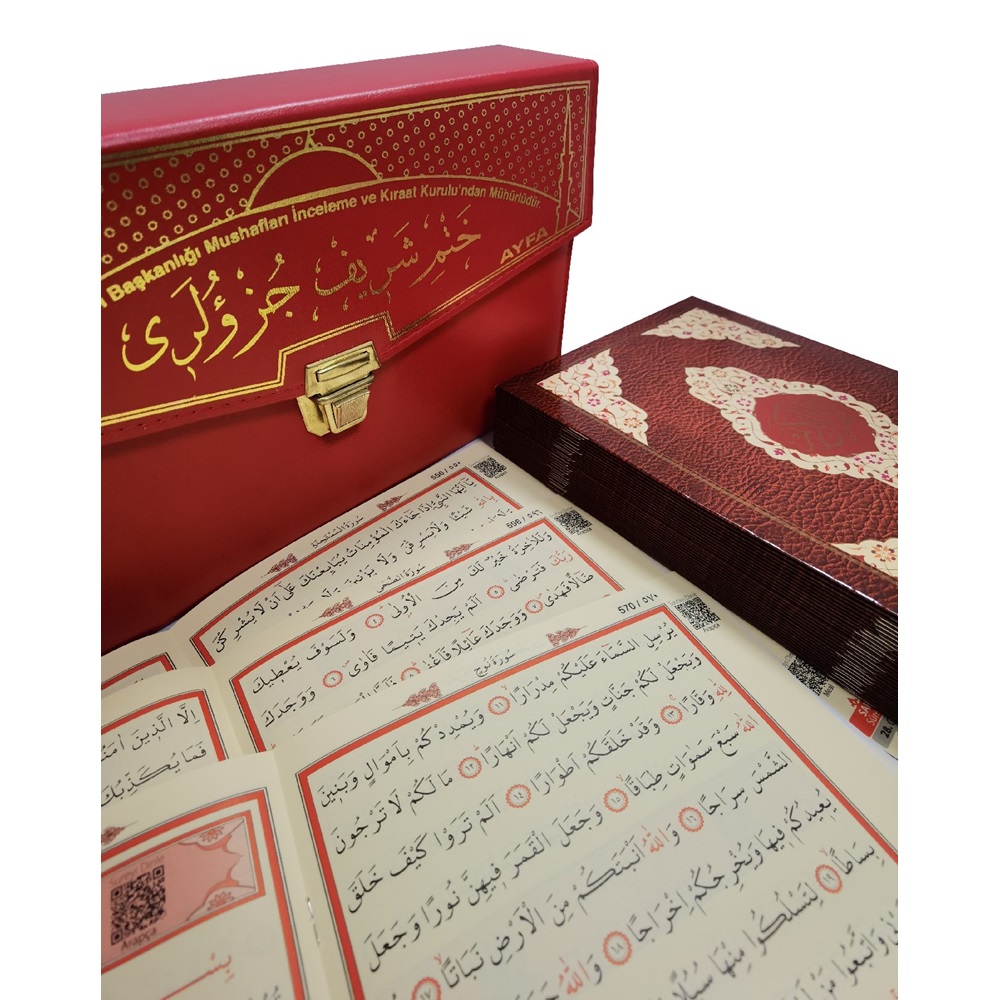 Başkanlığı Mushafları İnceleme ve Kıraat Kurulu'ndan Mühürlüdür.
ختم شريف جزؤلرى
AYFA
550 / ٥٥٠
سورة الممتحنة
يَا اَيُّهَا النَّبِيُّ اِذَا جَاءَكَ الْمُؤْمِنَاتُ يُبَايِعْنَكَ عَلٰى اَنْ لَا يُشْرِكْنَ
بِاللّٰهِ شَيْـًٔا وَلَا يَسْرِقْنَ وَلَا يَزْنِينَ وَلَا
596 / ٥٩٦
سورة الضحى
وَلَلْاٰخِرَةُ خَيْرٌ لَكَ مِنَ الْاُولٰى ٤ وَلَسَوْفَ يُعْطِيكَ
رَبُّكَ فَتَرْضٰى ٥ اَلَمْ يَجِدْكَ يَتِيمًا فَاٰوٰى ٦ وَوَجَدَكَ
ضَالًّا فَهَدٰى ٧ وَوَجَدَكَ عَائِلًا فَاَغْنٰى ٨
570 / ٥٧٠
Arapça
سورة نوح
يُرْسِلِ السَّمَاءَ عَلَيْكُمْ مِدْرَارًا ١١ وَيُمْدِدْكُمْ بِاَمْوَالٍ وَبَنِينَ
وَيَجْعَلْ لَكُمْ جَنَّاتٍ وَيَجْعَلْ لَكُمْ اَنْهَارًا ١٢ مَا لَكُمْ لَا تَرْجُونَ
لِلّٰهِ وَقَارًا ١٣ وَقَدْ خَلَقَكُمْ اَطْوَارًا ١٤ اَلَمْ تَرَوْا كَيْفَ خَلَقَ
اللّٰهُ سَبْعَ سَمٰوَاتٍ طِبَاقًا ١٥ وَجَعَلَ الْقَمَرَ فِيهِنَّ نُورًا وَجَعَلَ
الشَّمْسَ سِرَاجًا ١٦ وَاللّٰهُ اَنْبَتَكُمْ مِنَ الْاَرْضِ نَبَاتًا ١٧
يُعِيدُكُمْ فِيهَا وَيُخْرِجُكُمْ اِخْرَاجًا ١٨ وَاللّٰهُ
بِسَاطًا ١٩ لِتَسْلُكُوا مِنْهَا سُبُلًا
وَاتَّبَعُوا مَنْ
اِلَّا الَّذِينَ اٰمَنُوا
فَمَا يُكَذِّبُكَ
Sureyi Dinle
Arapça
بِسْــ
28.